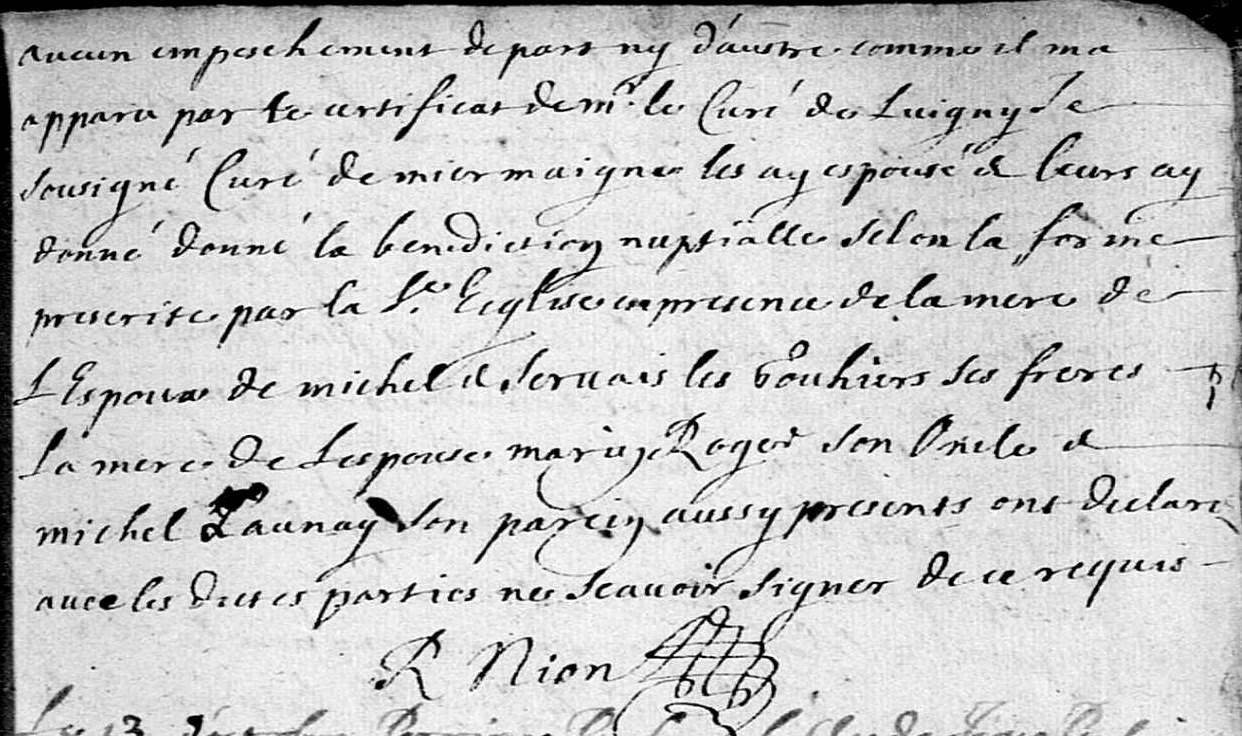 aucun empeschement de part ny d'austre comme il ma
apparu par le certificat de mr. le Curé de Luigny Je
sousigné Curé de miermaigne les ay espousé et leurs ay
donné donné la benediction nuptialle selon la forme
prescrite par la Ste. Eeglise en presence de la mere de
L'Espoux de michel et Servais les bouhiers ses freres
La mere de Lespouse marin Roger son Oncle et
michel Launay son parein aussy presents ont declaré
avec les dictes parties ne scavoir signer de ce requis
R Nion